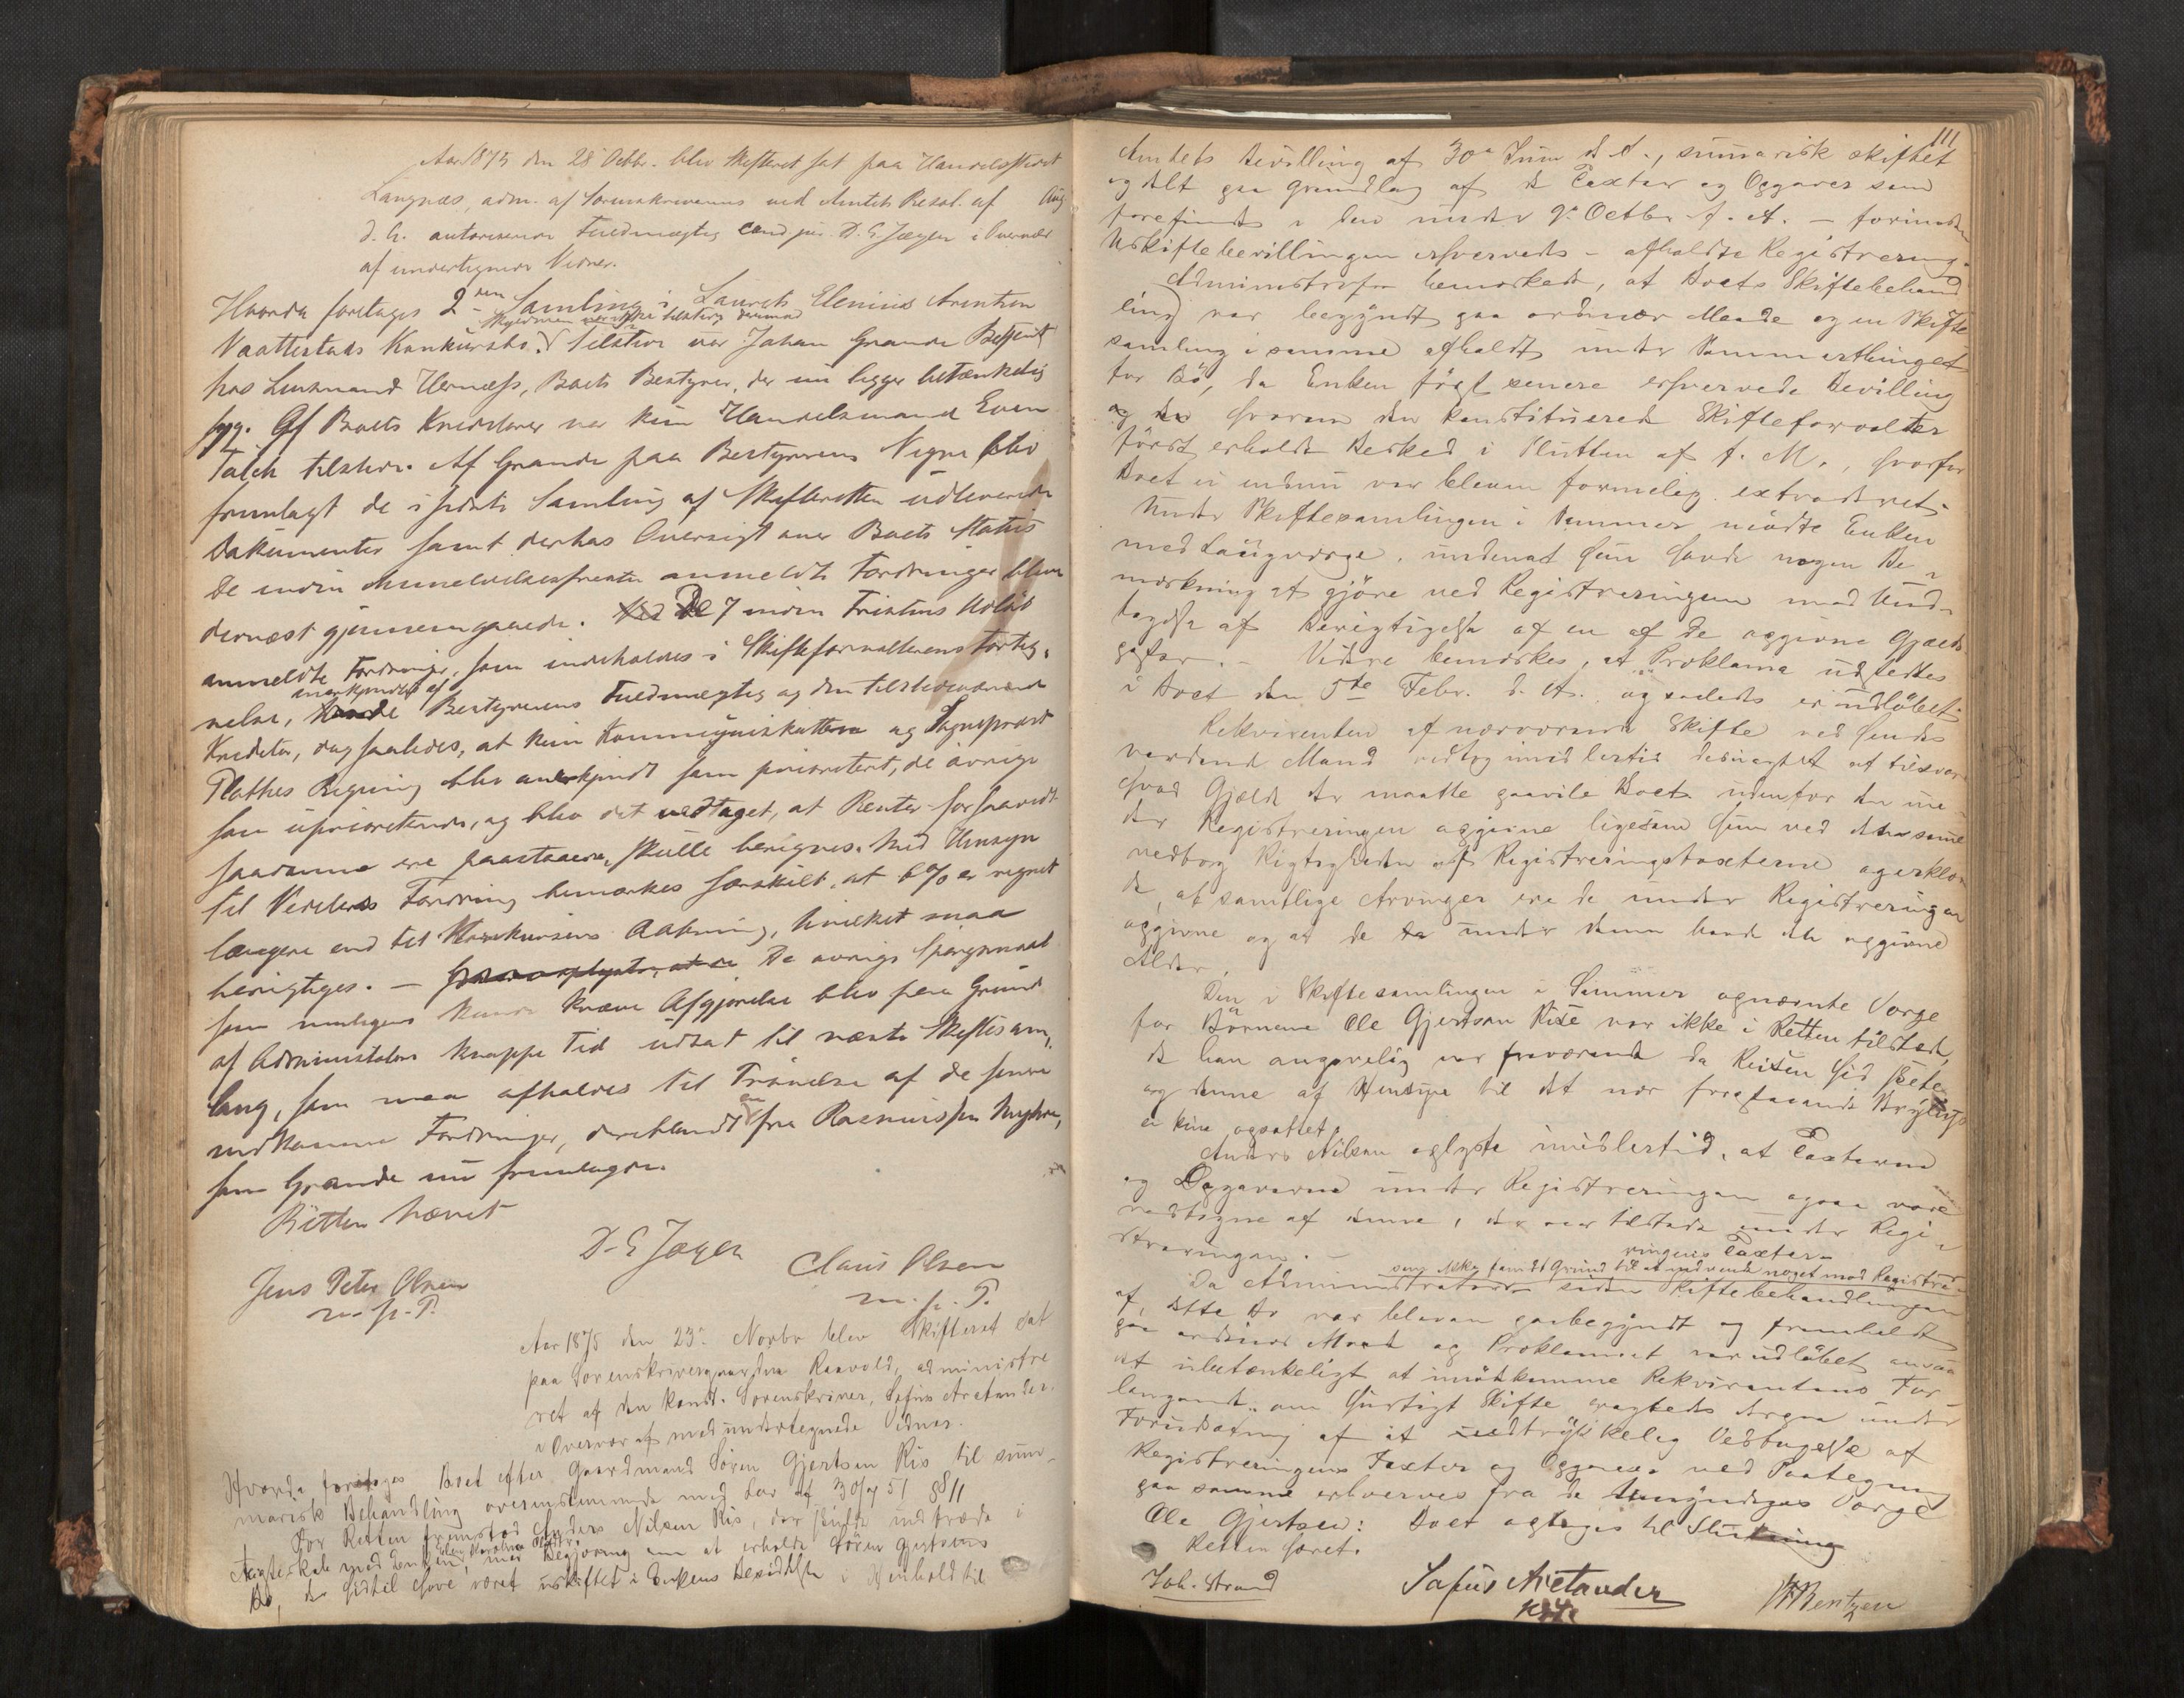 Aar 1875 den 28 Octbr. blev Skifteret sat paa Handelsstedet
Langnæs, adm. af Sorenskriverens ved Amtets Resol. af Aug
d. A. autoriserede Fuldmægtig cand. jur. D. E. Jæger i Overvær
af undertegnede Vidner.
Hvorda foretages 2den Samling i Laurits Elenius Arentsen
Vaattestads Konkursbo. Tilstede var Johan Grande Betjent
hos Lensmand Hernæss, Boets Bestyrer, der nu ligger betænkelig
syg. Af Boets Kreditorer var kun Handelsmand Even
Falch tilstede. Af Grande paa Bestyrerens Vegne blev
fremlagt de i sidste Samling af Skifteretten udleverede
Dokumenter samt derhos Oversigt over Boets Status
De inden Anmeldelsesfristen anmeldte Fordringer blev
dernæst gjennemgaaede. De 7 inden Fristens Udløb
anmeldte Fordringer, som indeholdes i Skifteforvalterens Forteg-
nelse, anerkjendtes af Bestyrerens Fuldmægtig og den tilstedeværende
Kreditor, dog saaledes, at kun Kommuneskatterne og Sogneprest
Plathes Regning blev anerkjendt som prioriteret, de øvrige
som uprioriterede, og blev det vedtaget, at Renter forsaavidt
saadanne ere paastaaede, skulle beregnes. Med Hensyn
til Fordring bemærkes særskilt, at 6 % er regnet
længere end til Konkursens Aabning, hvilket maa
berigtiges. — De øvrige Spørgsmaal
som muligens kunde kræve Afgjørelse blev paa Grund
af Administrators knappe Tid udsat til næste Skiftesam-
ling, som maa afholdes til Prøvelse af de senere
indkomne Fordringer, deriblandt en fra Rasmussen
som Grande nu fremlagde.
Retten hævet
D. E. Jæger
Jens Peter Olsen
m. p. P.
Claus Olsen
m. p. P.
Aar 1875 den 23de Novbr blev Skifteret sat
paa Sorenskrivergaarden Raavold, administre
ret af den konst. Sorenskriver, Sofus Arctander
i Overvær af medundertegnede Vidner.
Hvorda foretoges Boet efter Gaardmand Søren Gjertsen Ris til sum-
marisk Behandling overensstemmende med Lov af 30/7 51 § 11
For Retten fremstod Anders Nilsen Ris, der skulde indtræde i
Ægteskab med Enken, med Begjæring om at erholde Søren Gjertsens
Bo, der hidtil have været uskiftet i Enkens Besiddelse i Henhold til
111
Amtets Bevilling af 30te Juni d. A., summarisk skiftet
og Alt paa Grundlag af de Taxter og Opgaver som
forefindes i den under 9de Octbr f. A. — forinden
Uskiftebevillingen erhvervedes — afholdte Registrering.
Administrator bemærkede, at Boets Skiftebehand
ling var begyndt paa ordinær Maade og en Skifte
samling i samme afholdt under Sommerthinget
for Bø, da Enken først senere erhvervede Bevilling
og hvorom den konstituerede Skifteforvalter
først erholdt Besked i Slutten af f. M., hvorfor
Boet ei endnu var bleven formelig extraderet.
Under Skiftesamlingen i Sommer mødte Enken
med Laugværge, undenat hun havde nogen Be-
mærkning at gjøre ved Registreringen med Und-
tagelse af Berigtigelse af en af de opgivne Gjælds
poster. — Videre bemærkes, at Proklama udstedtes
i Boet den 5te Febr. d. A. og saaledes er udløbet.
Rekvirenten af nærværende Skifte ved hendes
vordende Mand vedtog imidlertid desuagtet at tilsvare
hvad Gjæld der maatte paahvile Boet udenfor den un
der Registreringen opgivne ligesom hun ved den samme
vedtog Rigtigheden af Registreringstaxterne og erklære
de, at samtlige Arvinger ere de under Registreringen
opgivne og at de under denne havde den opgivne
Alder.
Den i Skiftesamlingen i Sommer opnævnte Værge
for Børnene Ole Gjertsen Rise var ikke i Retten tilstede,
da han angivelig var fraværende da Reisen hid skete
og denne af Hensyn til det nær forestaaende Bryllup
ei kunde opsættes.
Anders Nilsen oplyste imidlertid, at Taxterne
og Opgaverne under Registreringen ogsaa vare
vedtagne af denne, der var tilstede under Regi-
streringen. —
Da Administrator, som ikke fandt Grund til at indvende noget mod Registre-
ringens Taxter siden Skiftebehandlingen
af dette Bo var bleven paabegyndt og fremholdt
paa ordinær Maade og Proklamaet var udløbet ansaa
det ubetænkeligt at imødkomme Rekvirentens For
langende om hurtigt Skifte, under
Forudsætning af at udtrykkelig Vedtagelse af
Registreringens Taxter og Opgaver ved Paategning
paa samme erhverves fra de Umyndiges Værge
Ole Gjertsen: Boet optages til Slutning
Retten hævet.
Joh. Strand
Sofus Arctander
kst.
Bentzen